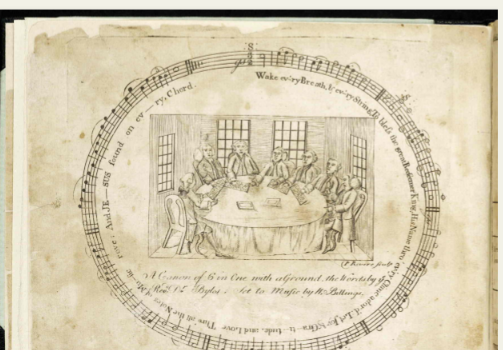 Wake ev'ry Breath, & ev'ry String, To bless the great Redeemer King, His Name thro' ev'ry Clime ador'd, Let Joy & Gratitude, and Love, Thro' all the Notes of Music rove, And JE—SUS sound on ev'ry Chord.
P. Revere Sculp
A Cannon of 6 in One with a Ground, the Words by the
Revd. Dr. Byles, Set to Music by W. Billings.